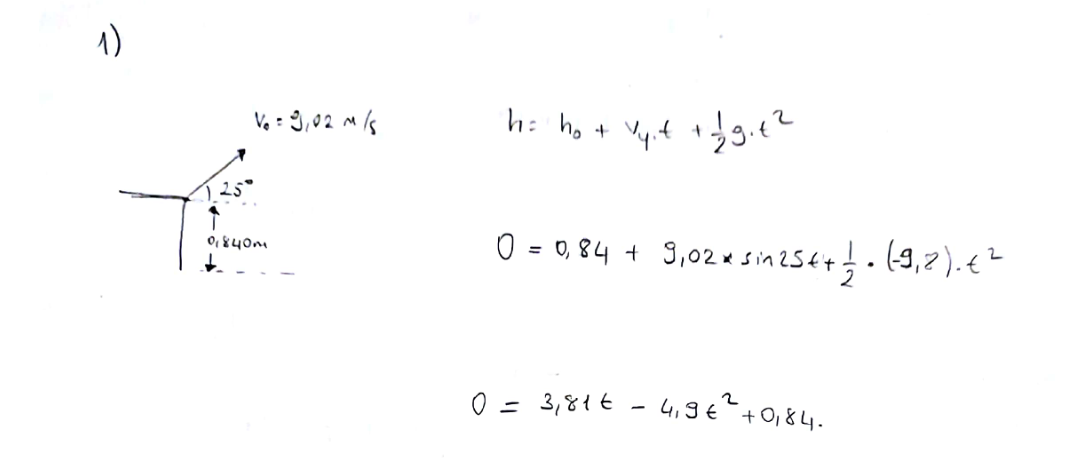 1)
V₀ = 9,02 m/s
25°
0,840m
h = h₀ + Vy.t + 1/2 g.t²
0 = 0,84 + 9,02 × sin25t + 1/2 . (-9,8).t²
0 = 3,81t - 4,9t² + 0,84.